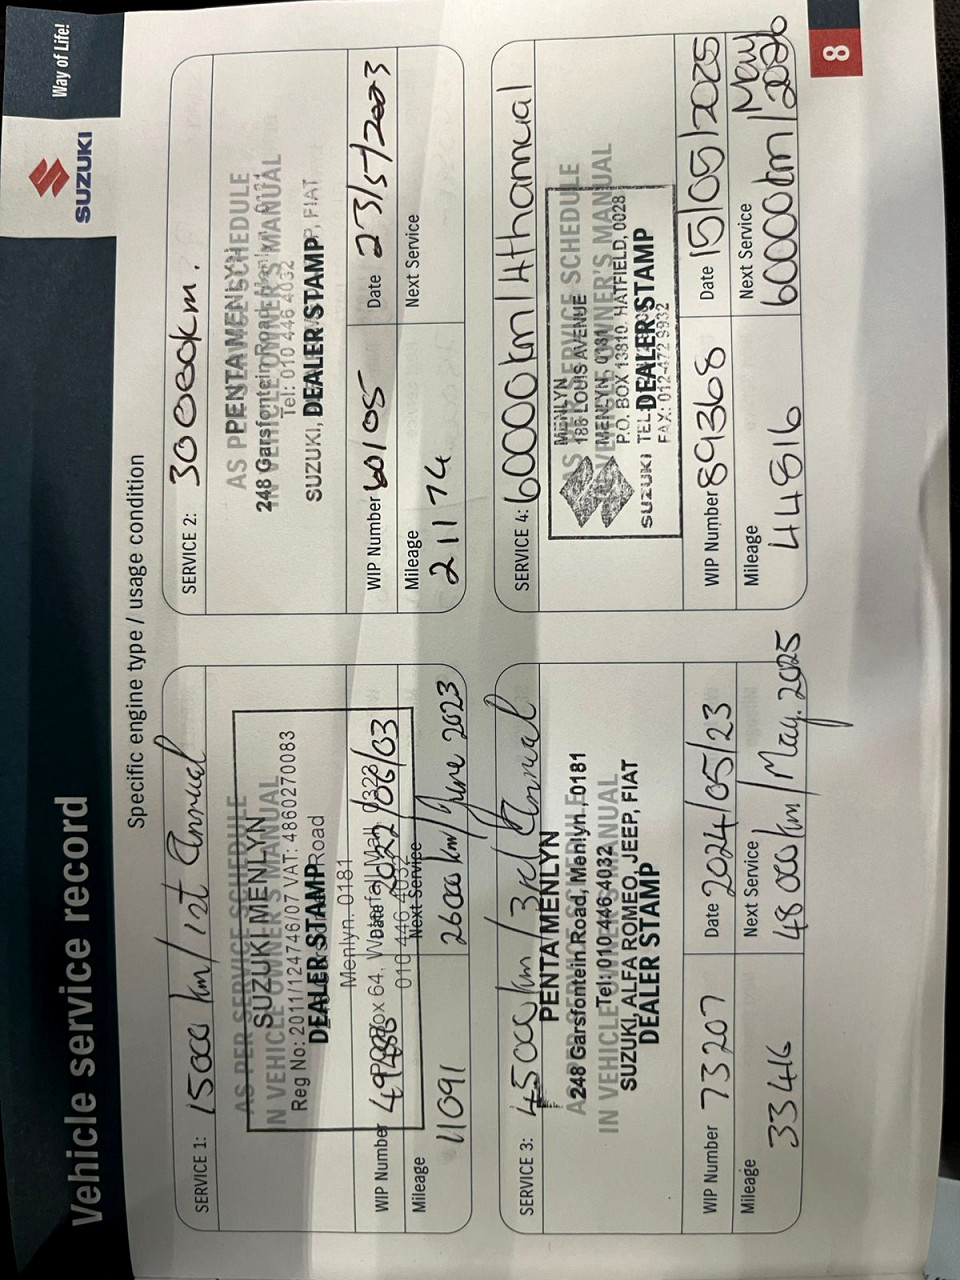 Vehicle service record
SUZUKI
Way of Life!
Specific engine type / usage condition
SERVICE 1: 15000 km / 1st Annual
AS PER SERVICE SCHEDULE
SUZUKI MENLYN
IN VEHICLE OWNER'S MANUAL
Reg No: 2011/124746/07 VAT: 4860270083
DEALER STAMP
Road
Menlyn. 0181
WIP Number
Date 2022/06/03
010 446 4032
Mileage
11091
Next Service
26000 km / June 2023
SERVICE 2: 30000km.
AS PER SERVICE SCHEDULE
PENTA MENLYN
248 Garsfontein Road
IN VEHICLE OWNER'S MANUAL
Tel: 010 446 4032
SUZUKI, FIAT
DEALER STAMP
WIP Number 60105
Date 23/5/2023
Mileage
21174
Next Service
SERVICE 3: 45000km / 3rd Annual
PENTA MENLYN
248 Garsfontein Road, Menlyn, 0181
IN VEHICLE OWNER'S MANUAL
Tel: 010 446 4032
SUZUKI, ALFA ROMEO, JEEP, FIAT
DEALER STAMP
WIP Number 73207
Date 2024/05/23
Mileage
33416
Next Service
48000km / May. 2025
SERVICE 4: 60000km / 4th annual
MENLYN
AS PER SERVICE SCHEDULE
188 LOUIS AVENUE
IN VEHICLE OWNER'S MANUAL
MENLYN 0181
P.O. BOX 13810. HATFIELD, 0028
SUZUKI TEL
DEALER STAMP
FAX: 012-472 9932
WIP Number 89368
Date 15/05/2025
Mileage
44816
Next Service
60000km / May 2026
8